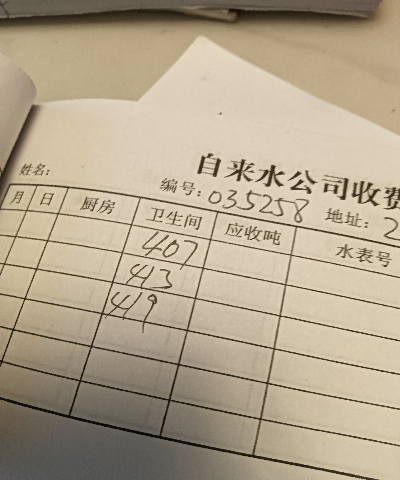 自来水公司收费
姓名: 编号: 035258 地址: 2
月 日 厨房 卫生间 应收吨 水表号
407
413
419